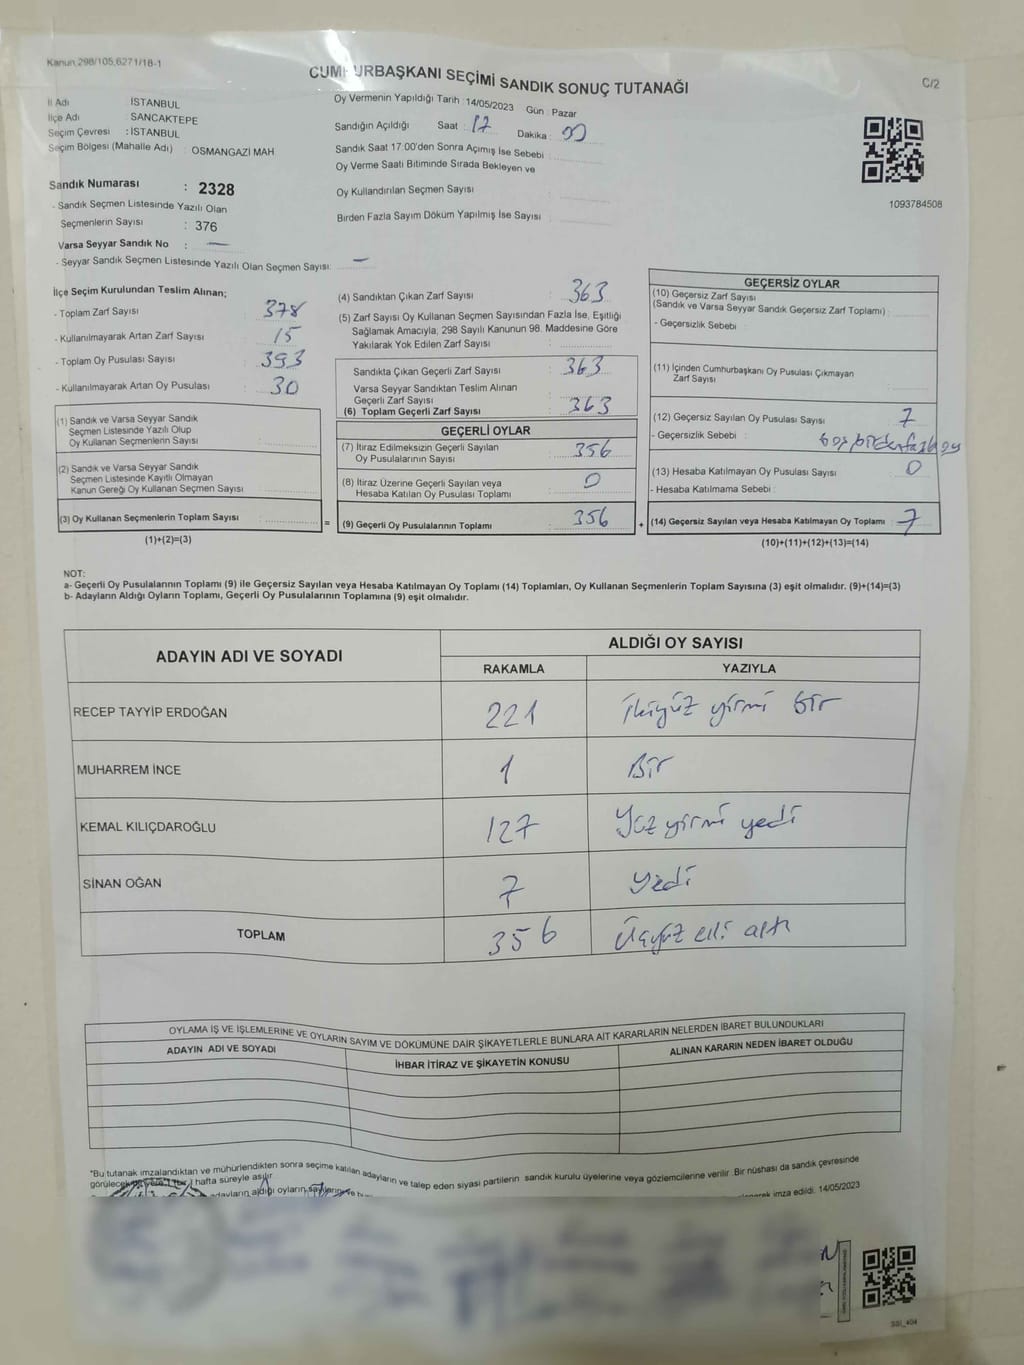 Kanun 298/105,6271/18-1
CUMHURBAŞKANI SEÇİMİ SANDIK SONUÇ TUTANAĞI
C/2
İl Adı : İSTANBUL
İlçe Adı : SANCAKTEPE
Seçim Çevresi : İSTANBUL
Seçim Bölgesi (Mahalle Adı) : OSMANGAZİ MAH
Sandık Numarası : 2328
- Sandık Seçmen Listesinde Yazılı Olan
Seçmenlerin Sayısı : 376
Varsa Seyyar Sandık No : —
- Seyyar Sandık Seçmen Listesinde Yazılı Olan Seçmen Sayısı: —
Oy Vermenin Yapıldığı Tarih : 14/05/2023 Gün : Pazar
Sandığın Açıldığı Saat : 17 Dakika : 00
Sandık Saat 17:00'den Sonra Açımış İse Sebebi :
Oy Verme Saati Bitiminde Sırada Bekleyen ve
Oy Kullandırılan Seçmen Sayısı :
Birden Fazla Sayım Döküm Yapılmış İse Sayısı :
1093784508
İlçe Seçim Kurulundan Teslim Alınan;
- Toplam Zarf Sayısı : 378
- Kullanılmayarak Artan Zarf Sayısı : 15
- Toplam Oy Pusulası Sayısı : 393
- Kullanılmayarak Artan Oy Pusulası : 30
(1) Sandık ve Varsa Seyyar Sandık
Seçmen Listesinde Yazılı Olup
Oy Kullanan Seçmenlerin Sayısı :
(2) Sandık ve Varsa Seyyar Sandık
Seçmen Listesinde Kayıtlı Olmayan
Kanun Gereği Oy Kullanan Seçmen Sayısı :
(3) Oy Kullanan Seçmenlerin Toplam Sayısı :
(1)+(2)=(3)
(4) Sandıktan Çıkan Zarf Sayısı : 363
(5) Zarf Sayısı Oy Kullanan Seçmen Sayısından Fazla İse, Eşitliği
Sağlamak Amacıyla, 298 Sayılı Kanunun 98. Maddesine Göre
Yakılarak Yok Edilen Zarf Sayısı :
Sandıkta Çıkan Geçerli Zarf Sayısı : 363
Varsa Seyyar Sandıktan Teslim Alınan
Geçerli Zarf Sayısı :
(6) Toplam Geçerli Zarf Sayısı : 363
GEÇERLİ OYLAR
(7) İtiraz Edilmeksizin Geçerli Sayılan
Oy Pusulalarının Sayısı : 356
(8) İtiraz Üzerine Geçerli Sayılan veya
Hesaba Katılan Oy Pusulası Toplamı : 0
= (9) Geçerli Oy Pusulalarının Toplamı : 356 +
GEÇERSİZ OYLAR
(10) Geçersiz Zarf Sayısı
(Sandık ve Varsa Seyyar Sandık Geçersiz Zarf Toplamı) :
- Geçersizlik Sebebi :
(11) İçinden Cumhurbaşkanı Oy Pusulası Çıkmayan
Zarf Sayısı :
(12) Geçersiz Sayılan Oy Pusulası Sayısı : 7
- Geçersizlik Sebebi : boş, birden fazla oy
(13) Hesaba Katılmayan Oy Pusulası Sayısı : 0
- Hesaba Katılmama Sebebi :
(14) Geçersiz Sayılan veya Hesaba Katılmayan Oy Toplamı : 7
(10)+(11)+(12)+(13)=(14)
NOT:
a- Geçerli Oy Pusulalarının Toplamı (9) ile Geçersiz Sayılan veya Hesaba Katılmayan Oy Toplamı (14) Toplamları, Oy Kullanan Seçmenlerin Toplam Sayısına (3) eşit olmalıdır. (9)+(14)=(3)
b- Adayların Aldığı Oyların Toplamı, Geçerli Oy Pusulalarının Toplamına (9) eşit olmalıdır.
ADAYIN ADI VE SOYADI
ALDIĞI OY SAYISI
RAKAMLA YAZIYLA
RECEP TAYYİP ERDOĞAN 221 İkiyüz yirmi bir
MUHARREM İNCE 1 Bir
KEMAL KILIÇDAROĞLU 127 Yüz yirmi yedi
SİNAN OĞAN 7 Yedi
TOPLAM 356 Üçyüz elli altı
OYLAMA İŞ VE İŞLEMLERİNE VE OYLARIN SAYIM VE DÖKÜMÜNE DAİR ŞİKAYETLERLE BUNLARA AİT KARARLARIN NELERDEN İBARET BULUNDUKLARI
ADAYIN ADI VE SOYADI İHBAR İTİRAZ VE ŞİKAYETİN KONUSU ALINAN KARARIN NEDEN İBARET OLDUĞU
*Bu tutanak imzalandıktan ve mühürlendikten sonra seçime katılan adayların ve talep eden siyasi partilerin sandık kurulu üyelerine veya gözlemcilerine verilir. Bir nüshası da sandık çevresinde
görülecek hafta süreyle asılır.
adayların aldığı oyların imza edildi. 14/05/2023